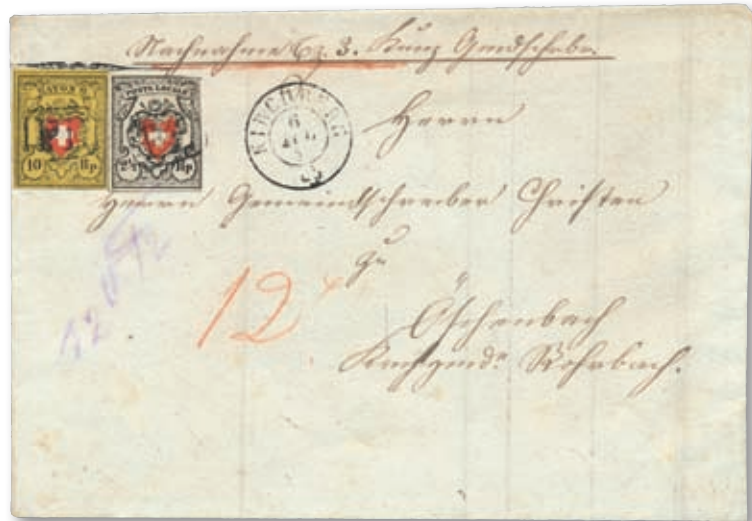 Nachnahme bz. 3. Kunz Gmdschrbr.
RAYON II
10 Rp
POSTE LOCALE
2½ Rp
KIRCHBERG
6
Herrn
Herrn Gemeindschreiber Christen
zu
Öschenbach
Kirchgmde Rohrbach.
12